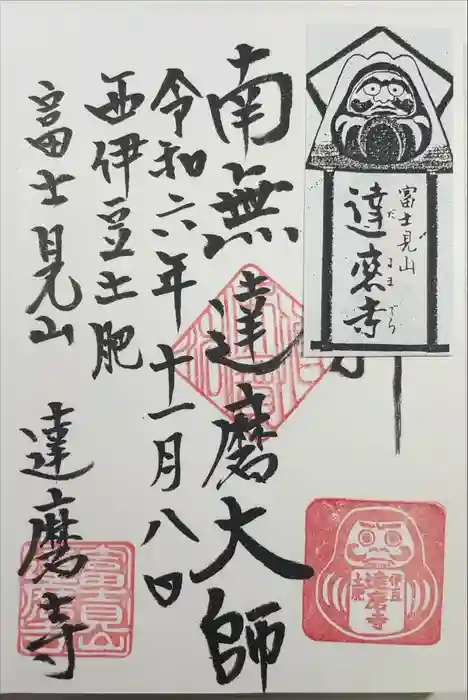 富士見山
達磨寺
だるまでら
南無達磨大師
令和六年十一月八日
西伊豆土肥
富士見山
達磨寺
伊豆
達磨寺
土肥
富士見山
達磨寺